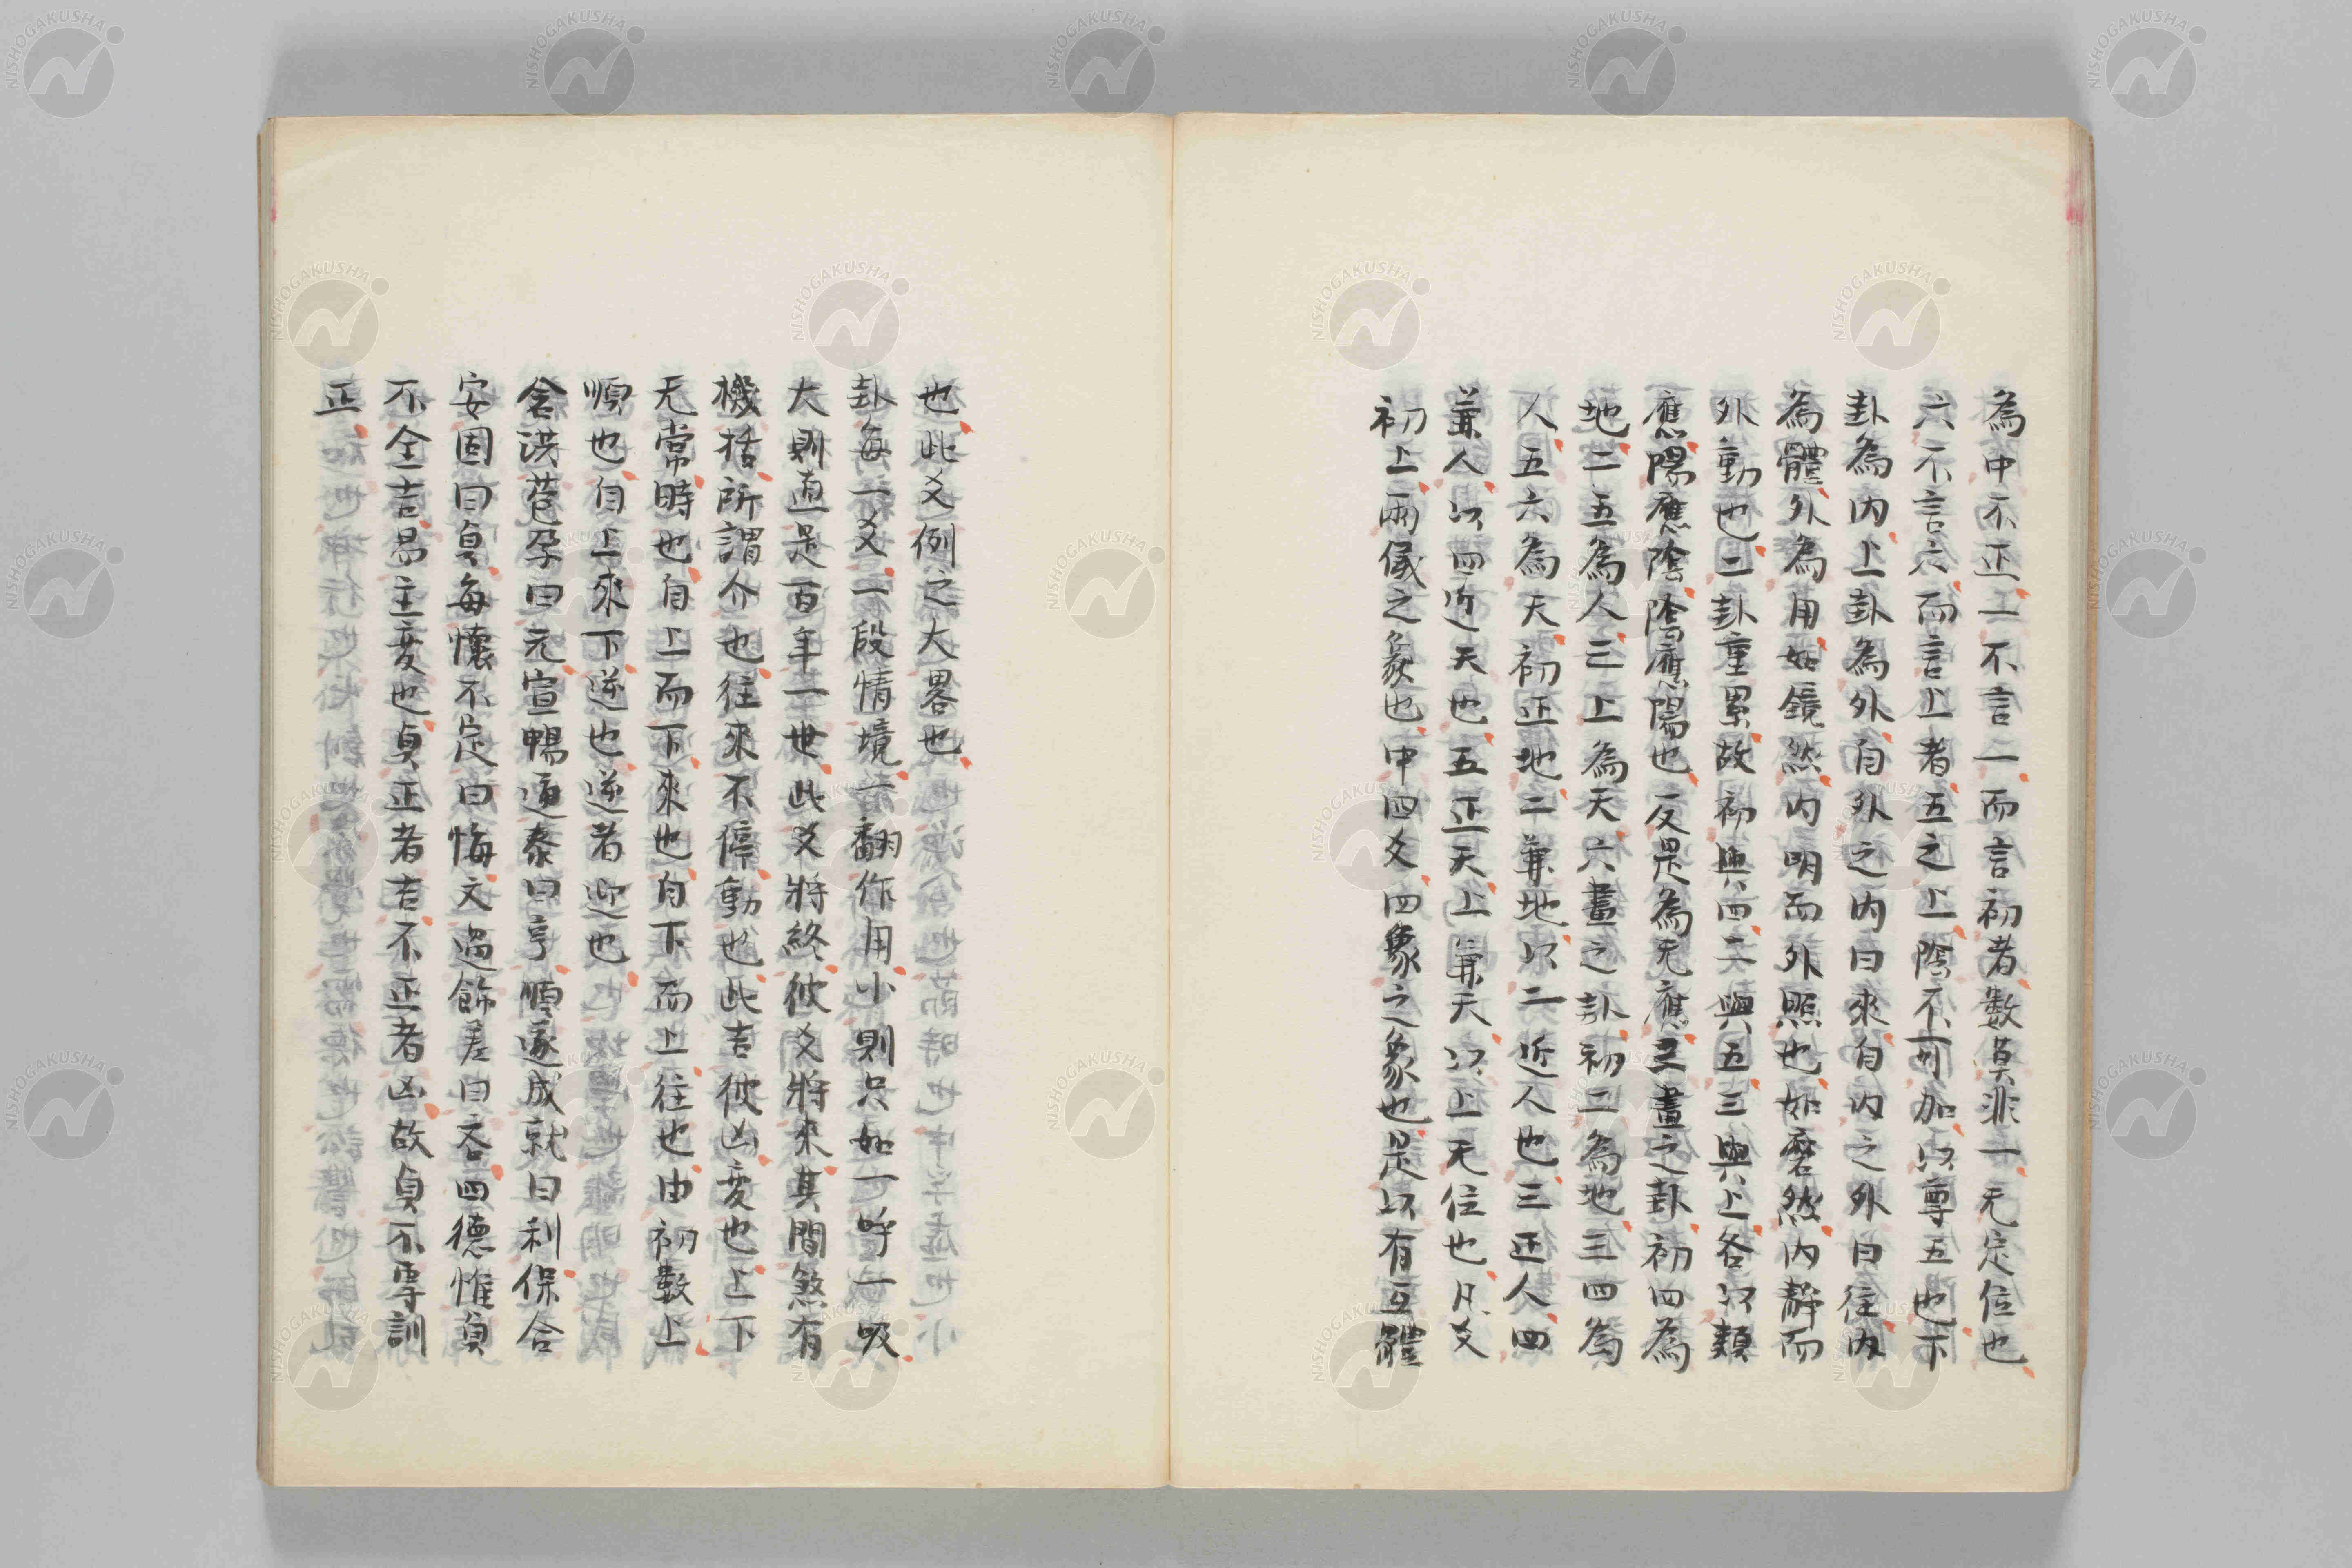 為中不正一不言一而言初者数莫非一无定位也
六不言六而言上者五之上陰不可加以尊五也下
卦為内上卦為外自外之内曰來自内之外曰往内
為體外為用如鏡然内明而外照也如磨然内靜而
外動也二卦重累故初與四二與五三與上各以類
應陽應陰陰應陽也反是為无應三畫之卦初四為
地二五為人三上為天六畫之卦初二為地三四為
人五六為天初正地二兼地以二近人也三正人四
兼人以四近天也五正天上兼天以上无位也凡爻
初上兩儀之象也中四爻四象之象也是以有互體
也此爻例之大畧也
卦每一爻一段情境一翻作用小則只如一呼一吸
大則直是百年一世此爻將終彼爻將來其間煞有
機括所謂介也往來不停動也此吉彼凶変也上下
无常時也自上而下來也自下而上往也由初数上
順也自上來下逆也逆者迎也
含洪苞孕曰元宣暢通泰曰亨順遂成就曰利保合
安固曰貞每懐不定曰悔文過飾羞曰吝四德惟貞
不全吉昜主変也貞正者吉不正者凶故貞不專訓
正
NISHOGAKUSHA